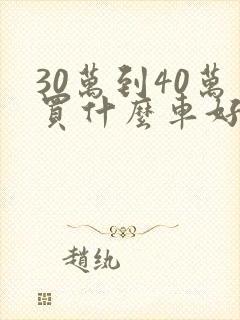 30萬到40萬
買什麼車好
趙紈